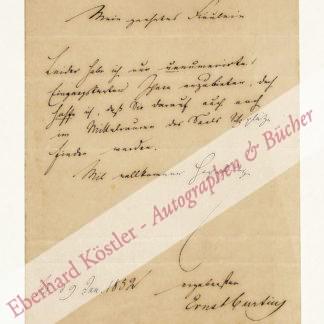 Mein geehrtes Fräulein
Leider habe ich nur unnumerirte
Eingangskarten Ihnen anzubieten, doch
hoffe ich, daß Sie darauf auch noch
im Mittelraume des Saals
finden werden.
Mit vollkommener
9 Jan. 1852
ergebenster
Ernst Curtius
Eberhard Köstler - Autographen & Bücher